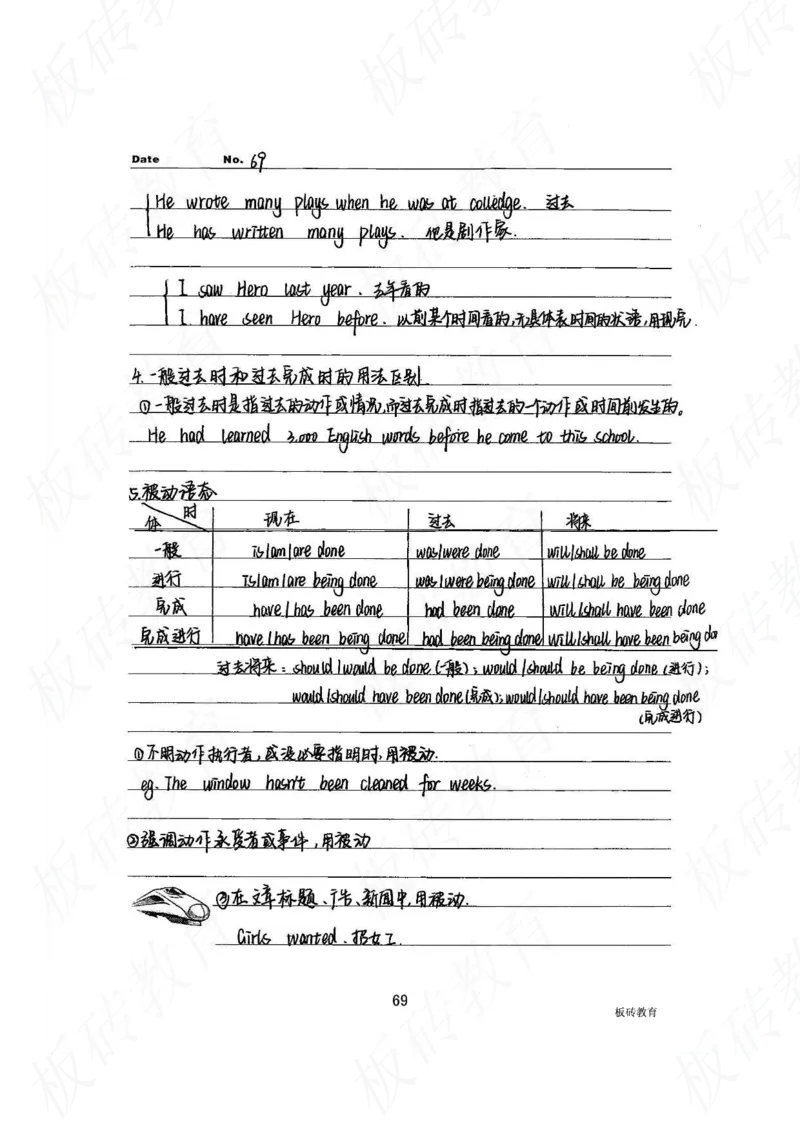 Date No. 69
He wrote many plays when he was at colledge. 过去
He has written many plays. 他是剧作家.
I saw Hero last year. 去年看的
I have seen Hero before. 以前某个时间看的,无具体表时间的状语,用现完.
4.一般过去时和过去完成时的用法区别
①一般过去时是指过去的动作或情况,而过去完成时指过去的一个动作或时间前发生的。
He had learned 3,000 English words before he come to this school.
5.被动语态
体 时 现在 过去 将来
一般 is/am/are done was/were done will/shall be done
进行 is/am/are being done was/were being done will/shall be being done
完成 have/has been done had been done will/shall have been done
完成进行 have/has been being done had been being done will/shall have been being do
过去将来:should/would be done(一般);would/should be being done(进行);
would/should have been done(完成);would/should have been being done
(完成进行)
①不明动作执行者,或没必要指明时,用被动.
eg. The window hasn't been cleaned for weeks.
②强调动作承受者或事件,用被动
③在文章标题、广告、新闻中,用被动.
Girls wanted. 招女工.
69
板砖教育